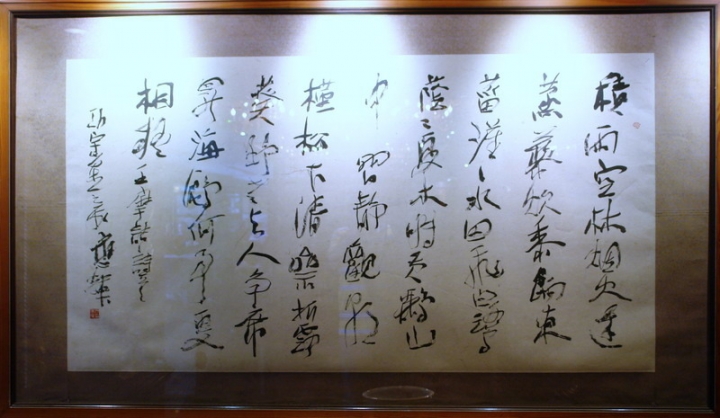 積雨空林烟火遲
蒸藜炊黍餉東
菑漠々水田飛白鷺
陰々夏木囀黃鸝山
中習靜觀朝
槿松下清齋折露
葵野老與人爭席
罷海鷗何事更
相疑王摩詰詩